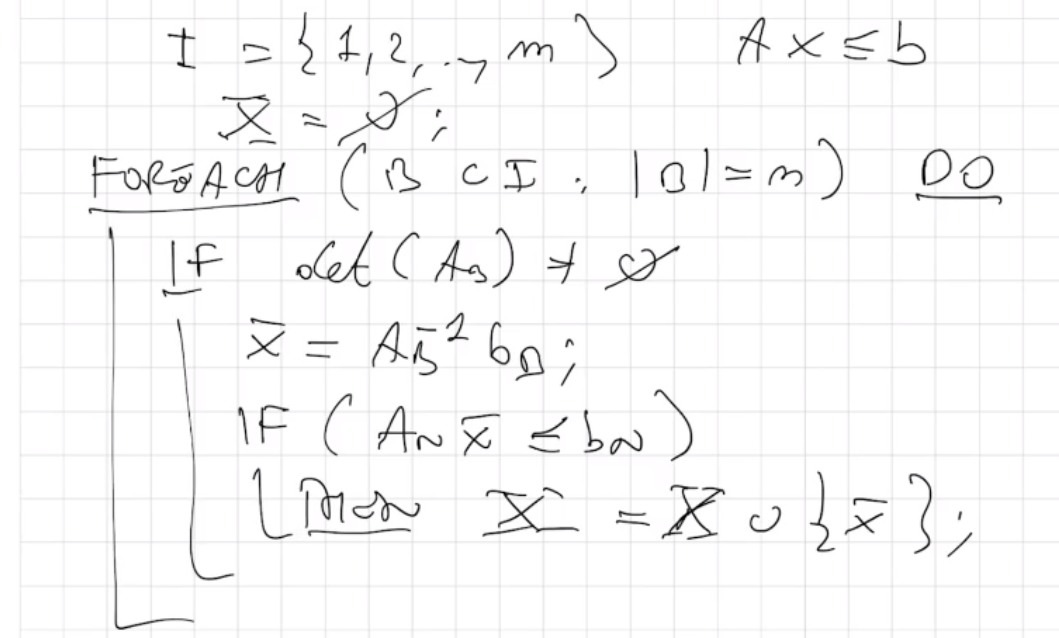 I = {1,2,..., m} Ax ≤ b
X = ∅;
FOREACH (B ⊂ I : |B| = n) DO
IF det(A_B) ≠ 0
x̄ = A_B^{-1} b_B;
IF (A_N x̄ ≤ b_N)
THEN X = X ∪ {x̄};